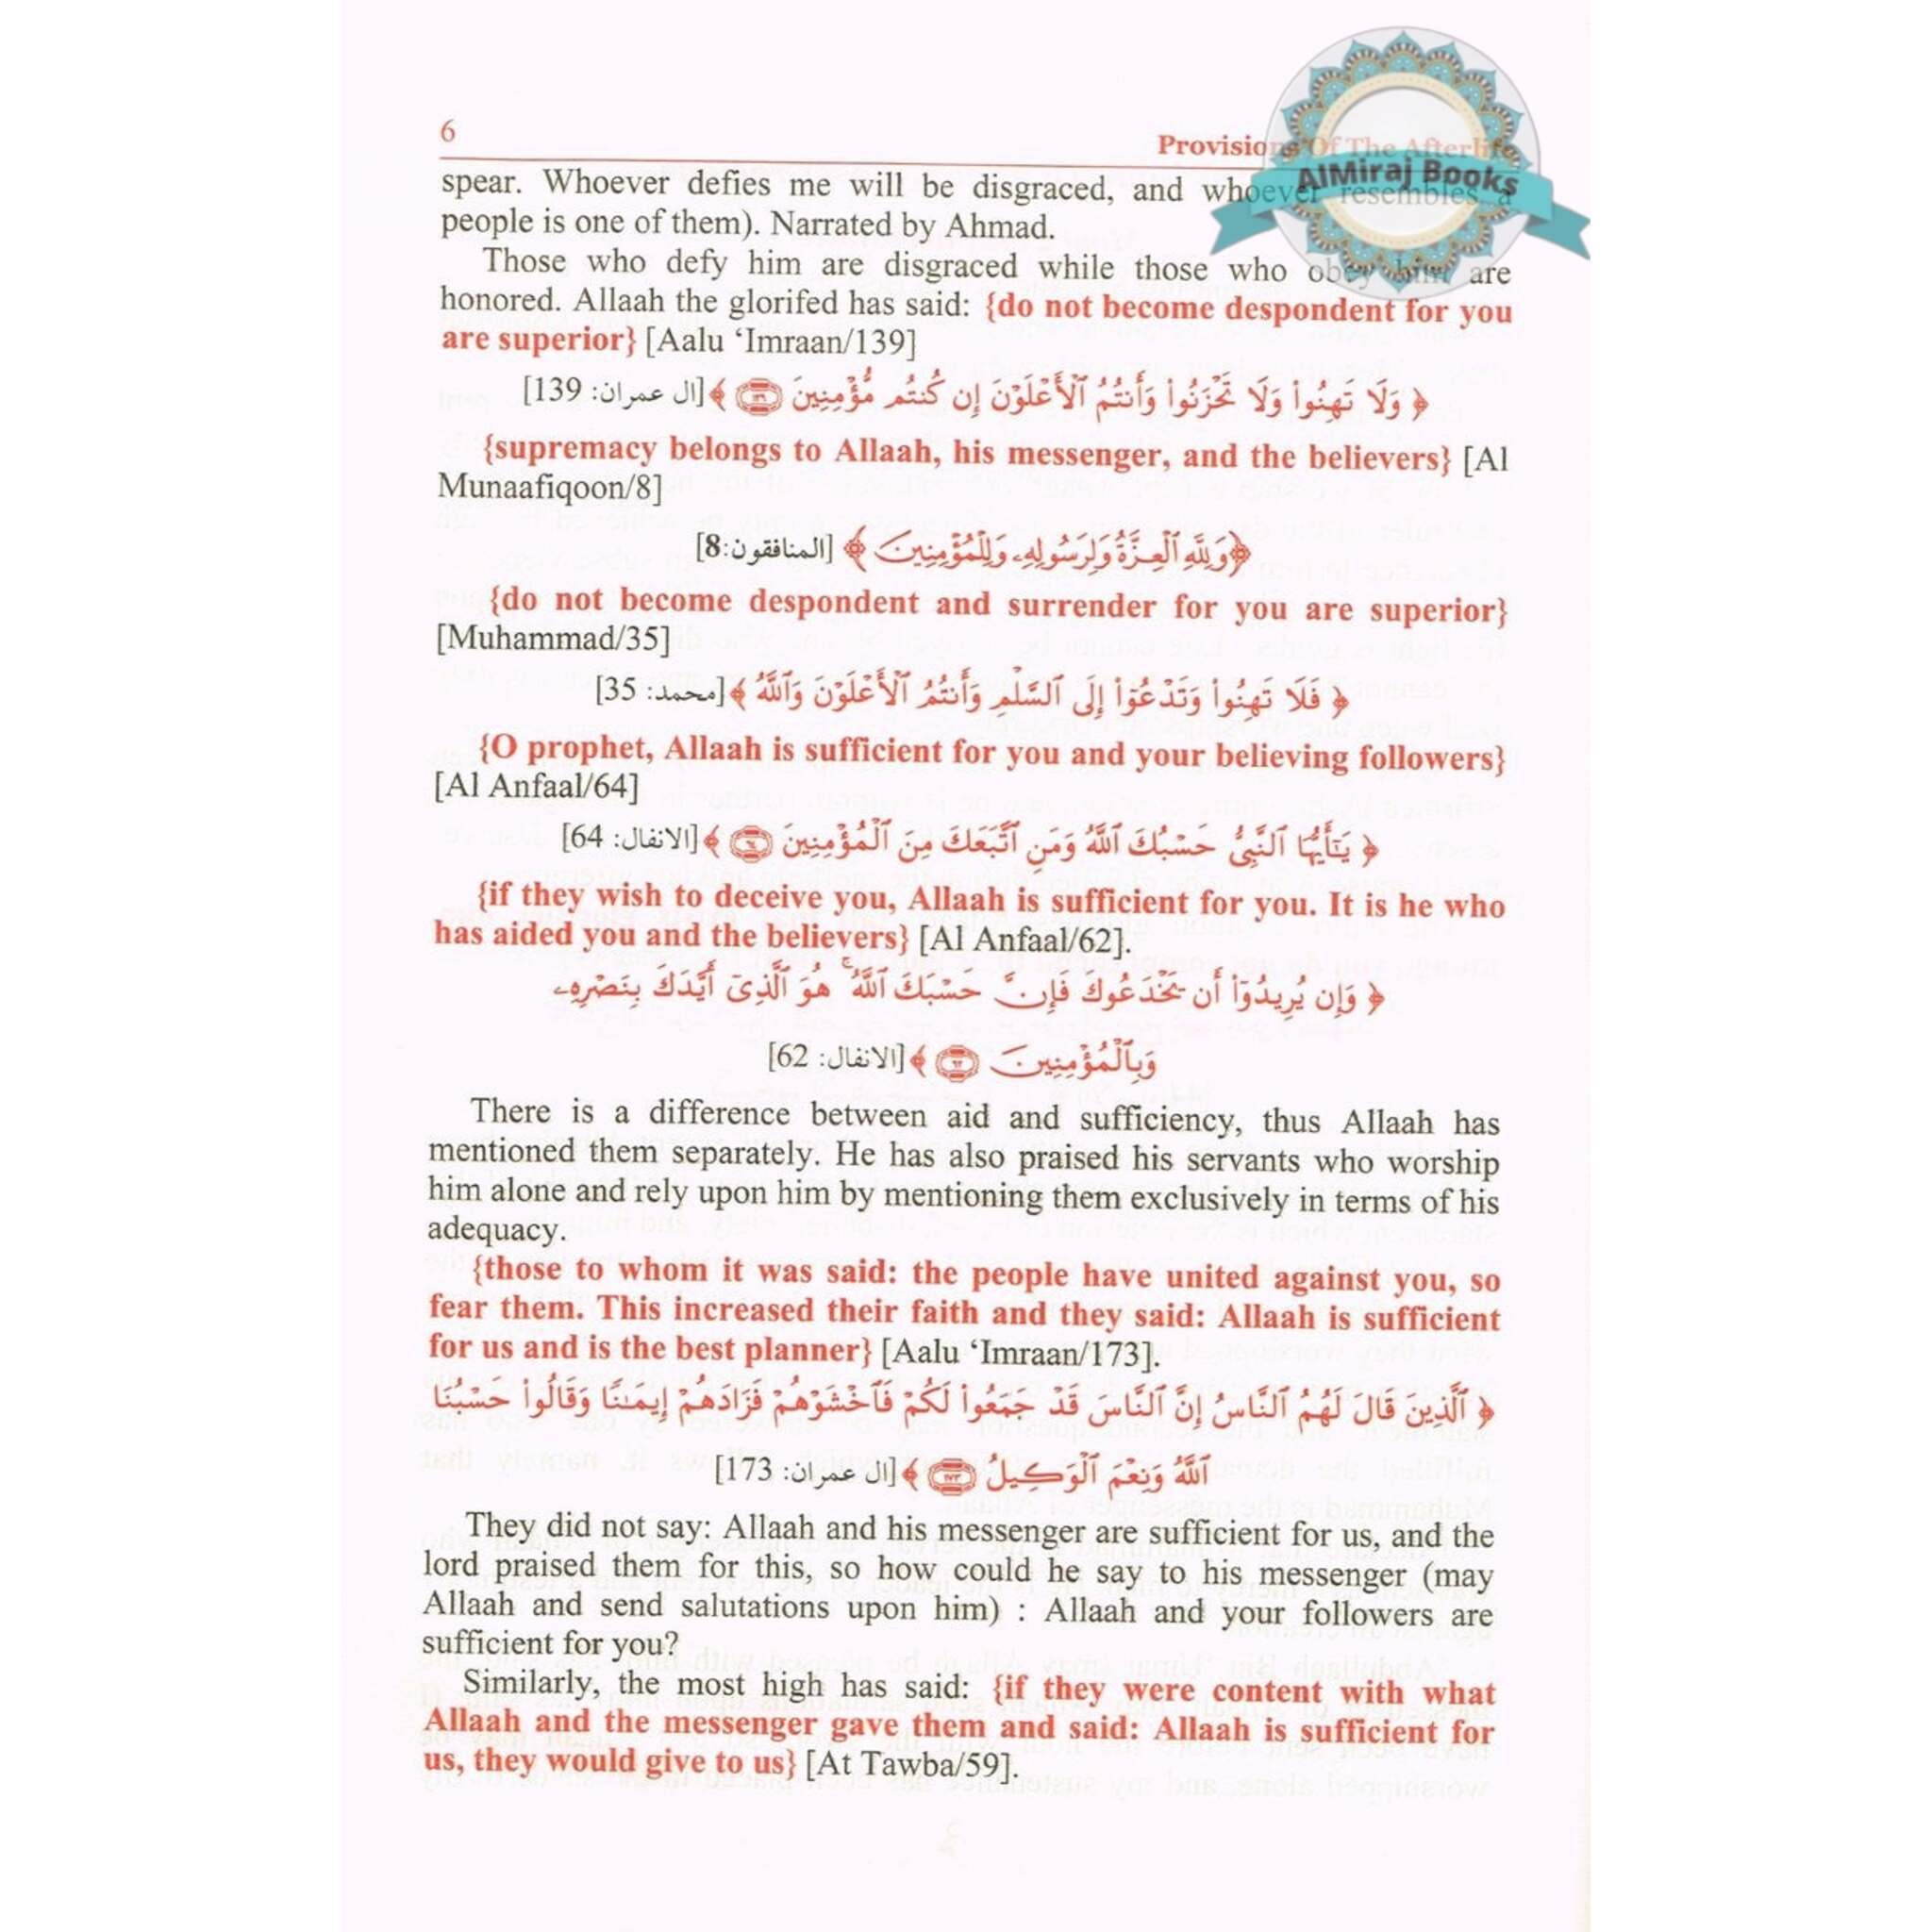 6
Provisions Of The Afterlife
AlMiraj Books
spear. Whoever defies me will be disgraced, and whoever resembles a
people is one of them). Narrated by Ahmad.
Those who defy him are disgraced while those who obey him are
honored. Allaah the glorifed has said: {do not become despondent for you
are superior} [Aalu ‘Imraan/139]
﴿ وَلَا تَهِنُوا۟ وَلَا تَحْزَنُوا۟ وَأَنتُمُ ٱلْأَعْلَوْنَ إِن كُنتُم مُّؤْمِنِينَ ١٣٩ ﴾[ال عمران: 139]
{supremacy belongs to Allaah, his messenger, and the believers} [Al
Munaafiqoon/8]
﴿وَلِلَّهِ ٱلْعِزَّةُ وَلِرَسُولِهِۦ وَلِلْمُؤْمِنِينَ ﴾ [المنافقون:8]
{do not become despondent and surrender for you are superior}
[Muhammad/35]
﴿ فَلَا تَهِنُوا۟ وَتَدْعُوٓا۟ إِلَى ٱلسَّلْمِ وَأَنتُمُ ٱلْأَعْلَوْنَ وَٱللَّهُ ﴾[محمد: 35]
{O prophet, Allaah is sufficient for you and your believing followers}
[Al Anfaal/64]
﴿ يَـٰٓأَيُّهَا ٱلنَّبِىُّ حَسْبُكَ ٱللَّهُ وَمَنِ ٱتَّبَعَكَ مِنَ ٱلْمُؤْمِنِينَ ٦٤ ﴾[الانفال: 64]
{if they wish to deceive you, Allaah is sufficient for you. It is he who
has aided you and the believers} [Al Anfaal/62].
﴿ وَإِن يُرِيدُوٓا۟ أَن يَخْدَعُوكَ فَإِنَّ حَسْبَكَ ٱللَّهُ ۚ هُوَ ٱلَّذِىٓ أَيَّدَكَ بِنَصْرِهِۦ
وَبِٱلْمُؤْمِنِينَ ٦٢ ﴾[الانفال: 62]
There is a difference between aid and sufficiency, thus Allaah has
mentioned them separately. He has also praised his servants who worship
him alone and rely upon him by mentioning them exclusively in terms of his
adequacy.
{those to whom it was said: the people have united against you, so
fear them. This increased their faith and they said: Allaah is sufficient
for us and is the best planner} [Aalu ‘Imraan/173].
﴿ ٱلَّذِينَ قَالَ لَهُمُ ٱلنَّاسُ إِنَّ ٱلنَّاسَ قَدْ جَمَعُوا۟ لَكُمْ فَٱخْشَوْهُمْ فَزَادَهُمْ إِيمَـٰنًا وَقَالُوا۟ حَسْبُنَا
ٱللَّهُ وَنِعْمَ ٱلْوَكِيلُ ١٧٣ ﴾[ال عمران: 173]
They did not say: Allaah and his messenger are sufficient for us, and the
lord praised them for this, so how could he say to his messenger (may
Allaah and send salutations upon him) : Allaah and your followers are
sufficient for you?
Similarly, the most high has said: {if they were content with what
Allaah and the messenger gave them and said: Allaah is sufficient for
us, they would give to us} [At Tawba/59].